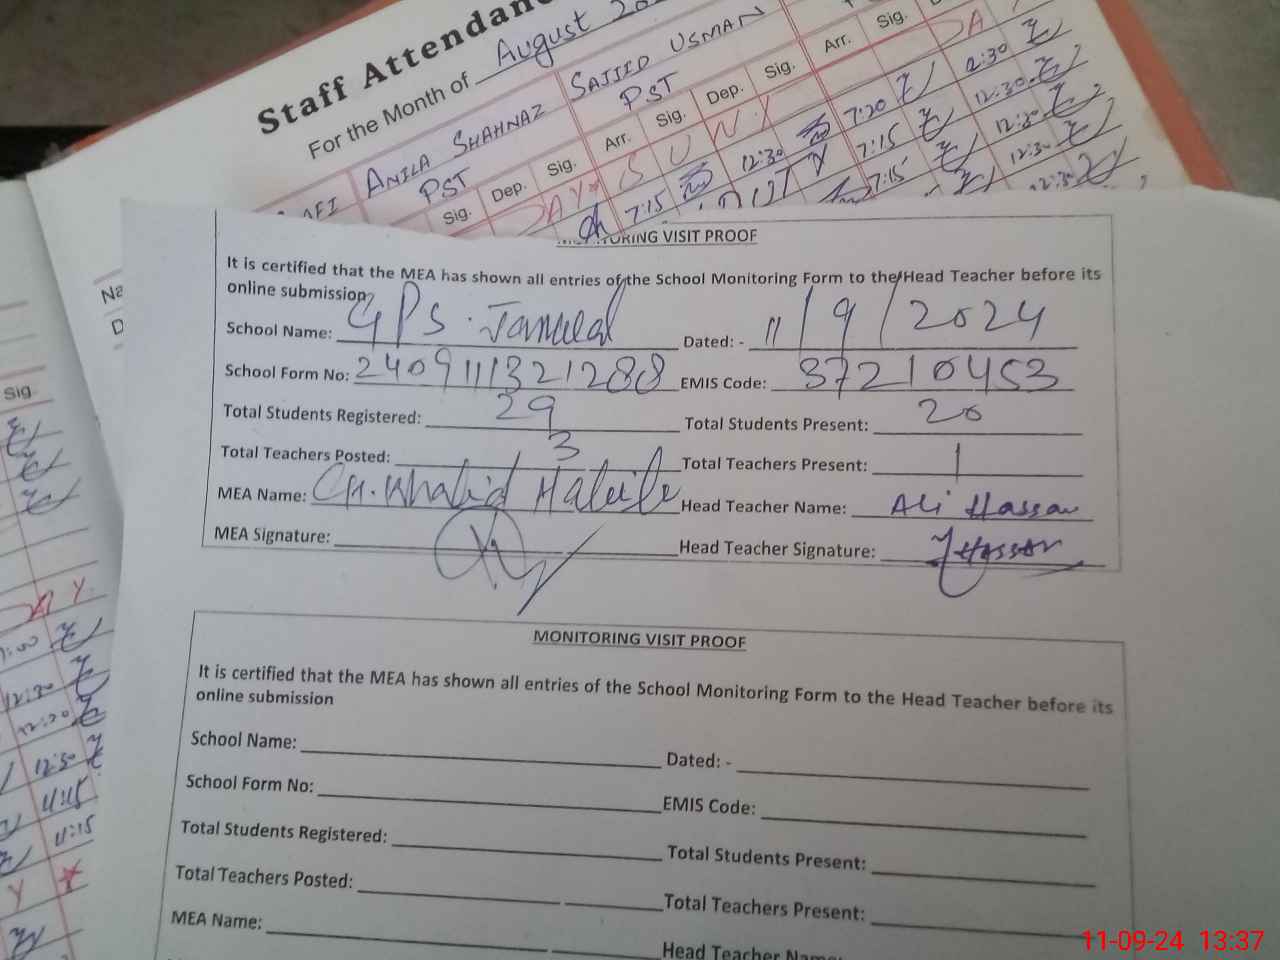 Staff Attendan
For the Month of August 20
ANILA SHAHNAZ SAJJID USMAN
PST PST
Sig. Dep. Sig. Arr. Sig. Dep. Sig. Arr. Sig.
DAY S U N Y DA
7:15 12:30 7:20 12:30
DUTY 7:15 12:30
7:15 12:30
12:30
12:30
MONITORING VISIT PROOF
It is certified that the MEA has shown all entries of the School Monitoring Form to the Head Teacher before its
online submission
School Name: GPS. Dated: - 11/9/2024
School Form No: 2409111321288 EMIS Code: 37210453
Total Students Registered: 29 Total Students Present: 20
Total Teachers Posted: 3 Total Teachers Present: 1
MEA Name: CH. Khalid Head Teacher Name: Ali Hassan
MEA Signature: Head Teacher Signature: Hassan
MONITORING VISIT PROOF
It is certified that the MEA has shown all entries of the School Monitoring Form to the Head Teacher before its
online submission
School Name: Dated: -
School Form No: EMIS Code:
Total Students Registered: Total Students Present:
Total Teachers Posted: Total Teachers Present:
MEA Name: Head Teacher Name:
Sig.
DAY
12:30
12:30
12:30
11:15
11:15
Y
11-09-24 13:37